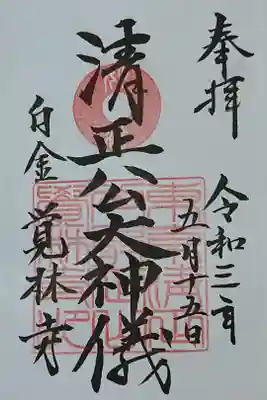 奉拝
令和三年
五月十五日
清正公大神儀
白金 覚林寺